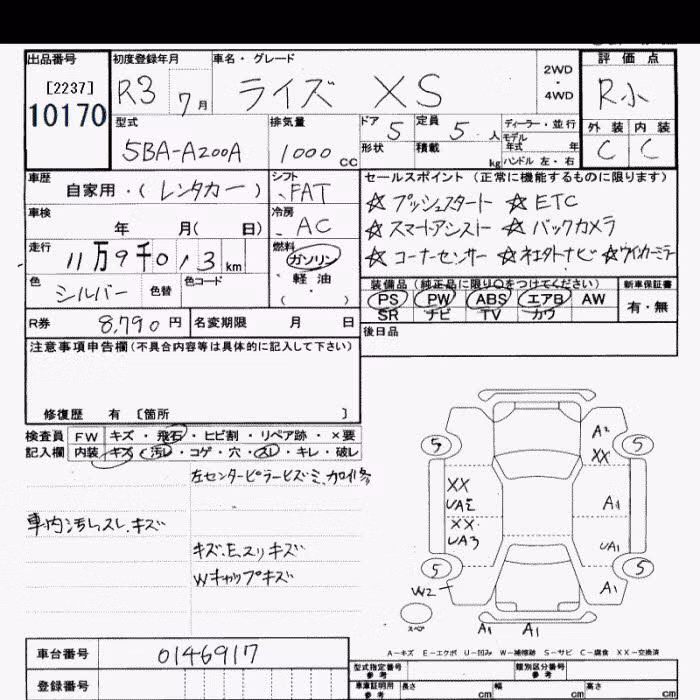 出品番号 初度登録年月 車名・グレード 評価点
[2237] R3 7月 ライズ XS 2WD・4WD R小
10170
型式 排気量 ドア 5 定員 5人 ディーラー・並行 外装 内装
5BA-A200A 1000cc 形状 積載 kg モデル年式 年 ハンドル 左・右 C C
車歴 シフト セールスポイント (正常に機能するものに限ります)
自家用・(レンタカー) FAT ☆プッシュスタート ☆ETC
車検 冷房 ☆スマートアシスト ☆バックカメラ
年 月( 日) AC
走行 燃料 ☆コーナーセンサー
11万9千013km ガソリン
色 色替 色コード 軽油 装備品(純正品に限り○をつけてください) 新車保証書
シルバー ( ・ ) PS PW ABS エアB AW 有・無
SR ナビ TV カワ
R券 8,790円 名変期限 月 日 後日品
注意事項申告欄(不具合内容等は具体的に記入して下さい)
修復歴 有 [箇所 ]
検査員 FW キズ・飛石・ヒビ割・リペア跡・×要
記入欄 内装 キズ・汚レ・コゲ・穴・スレ・キレ・破レ
左センターピラーヒズミ、
車内汚レ、スレ、キズ
キズ、E、スリキズ
Wキャップキズ
A2
5 XX 5
XX
UAE A1
XX
UA3 UA1
5 5
W2 A1
スペア
A1 A1
A-キズ E-エクボ U-凹み W-補修跡 S-サビ C-腐食 XX-交換済
車台番号 0146917 型式指定番号 参考 類別区分番号 参考
登録番号 車庫証明用 参考 長さ cm 幅 cm 高さ cm